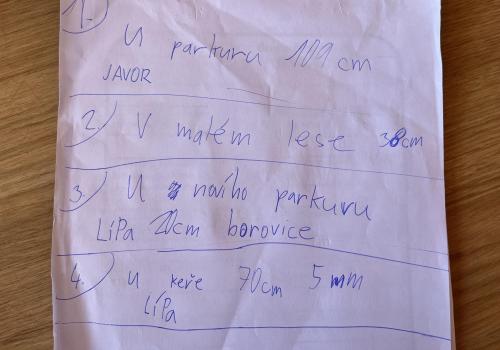 1. U parkuru 109 cm
JAVOR
2. V malém lese 38cm
3. U novího parkuru
LíPa 20cm borovice
4. U keře 70cm 5mm
LíPa